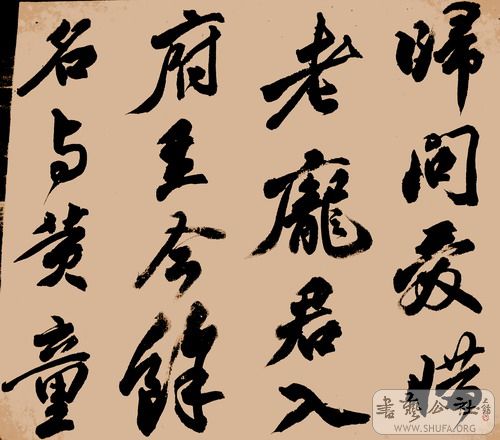 歸問愛惜
老龐君入
府至今餘
名与黃童
書藝公社
WWW.SHUFA.ORG